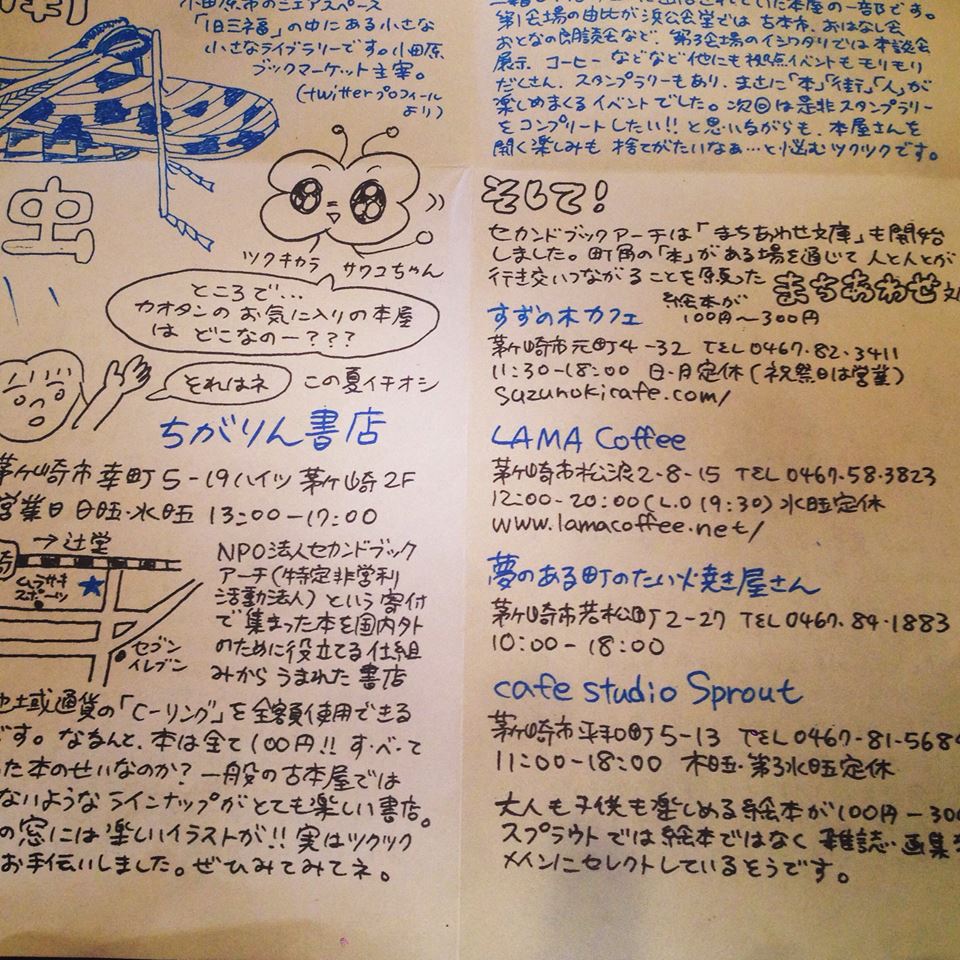 小田原市のシェアスペース
「旧三福」の中にある小さな
小さなライブラリーです。小田原
ブックマーケット主宰。
(twitterプロフィール
より)
虫
ツクキカラ サワコちゃん
ところで…
カオタンのお気に入りの本屋
は どこなのー???
それはネ
この夏イチオシ
ちがりん書店
茅ヶ崎市 幸町5-19ハイツ茅ヶ崎2F
営業日 日旺・水旺 13:00-17:00
→辻堂
崎
ムラサキ
スポーツ
セブン
イレブン
NPO法人セカンドブック
アーチ(特定非営利
活動法人)という寄付
で集まった本を国内外
のために役立てる仕組
みからうまれた書店
地域通貨の「C-リング」を全額使用できる
です。ななんと、本は全て100円!! す・べ・て
た本のせいなのか? 一般の古本屋では
ないようなラインナップがとても楽しい書店。
の窓には楽しいイラストが!! 実はツクツク
お手伝いしました。ぜひみてみてネ。
本屋の一部です。
第1会場の由比が浜公会堂では古本市、おはなし会
おとなの朗読会など、第3会場のイシワタリでは本談会
展示、コーヒー などなど他にも拠点イベントもモリモリ
だくさん、スタンプラリーもあり、まさに「本」「街」「人」が
楽しめまくるイベントでした。次回は是非スタンプラリー
をコンプリートしたい!! と思いながらも、本屋さんを
開く楽しみも 捨てがたいなぁ…と悩むツクツクです。
そして!
セカンドブックアーチは「まちあわせ文庫」も開始
しました。町角の「本」がある場を通じて人と人とが
行き交いつながることを願った まちあわせ文
絵本が
100円〜300円
すずの木カフェ
茅ヶ崎市元町4-32 TEL 0467・82・3411
11:30-18:00 日・月定休(祝祭日は営業)
suzunokicafe.com/
LAMA Coffee
茅ヶ崎市松浪2-8-15 TEL 0467-58-3823
12:00-20:00(L.O 19:30)水旺定休
www.lamacoffee.net/
夢のある町のたい焼き屋さん
茅ヶ崎市若松町2-27 TEL 0467・84・1883
10:00-18:00
cafe studio Sprout
茅ヶ崎市平和町5-13 TEL 0467-81-5684
11:00-18:00 木旺・第3水旺定休
大人も子供も楽しめる絵本が100円-300
スプラウトでは絵本ではなく雑誌・画集を
メインにセレクトしているそうです。